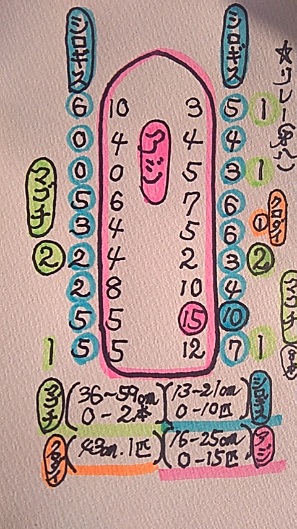 ☆リレー
シロギス
シロギス
アジ
6 10 3 5 1
0 4 4 4
0 0 5 3 1
マゴチ
5 6 7 6
クロダイ
3 4 5 6 1
2 2 4 2 3 2
2 8 10 4
マゴチ
5 5 15 10
1 5 5 12 7 1
マゴチ (36~59cm 0-2本)
(13-21cm 0-10匹) シロギス
クロダイ (43cm.1匹)
(16-25cm 0-15匹) アジ